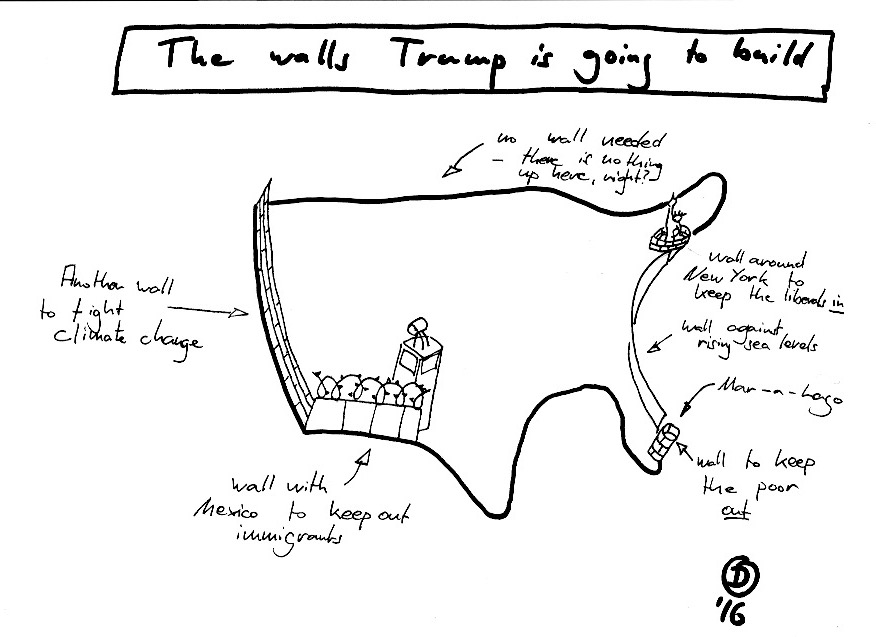 The walls Trump is going to build
no wall needed
- there is nothing
up here, right?
wall around
New York to
keep the liberals in
Another wall
to fight
climate change
wall against
rising sea levels
Mar-a-Lago
wall to keep
the poor
out
wall with
Mexico to keep out
immigrants
D
'16